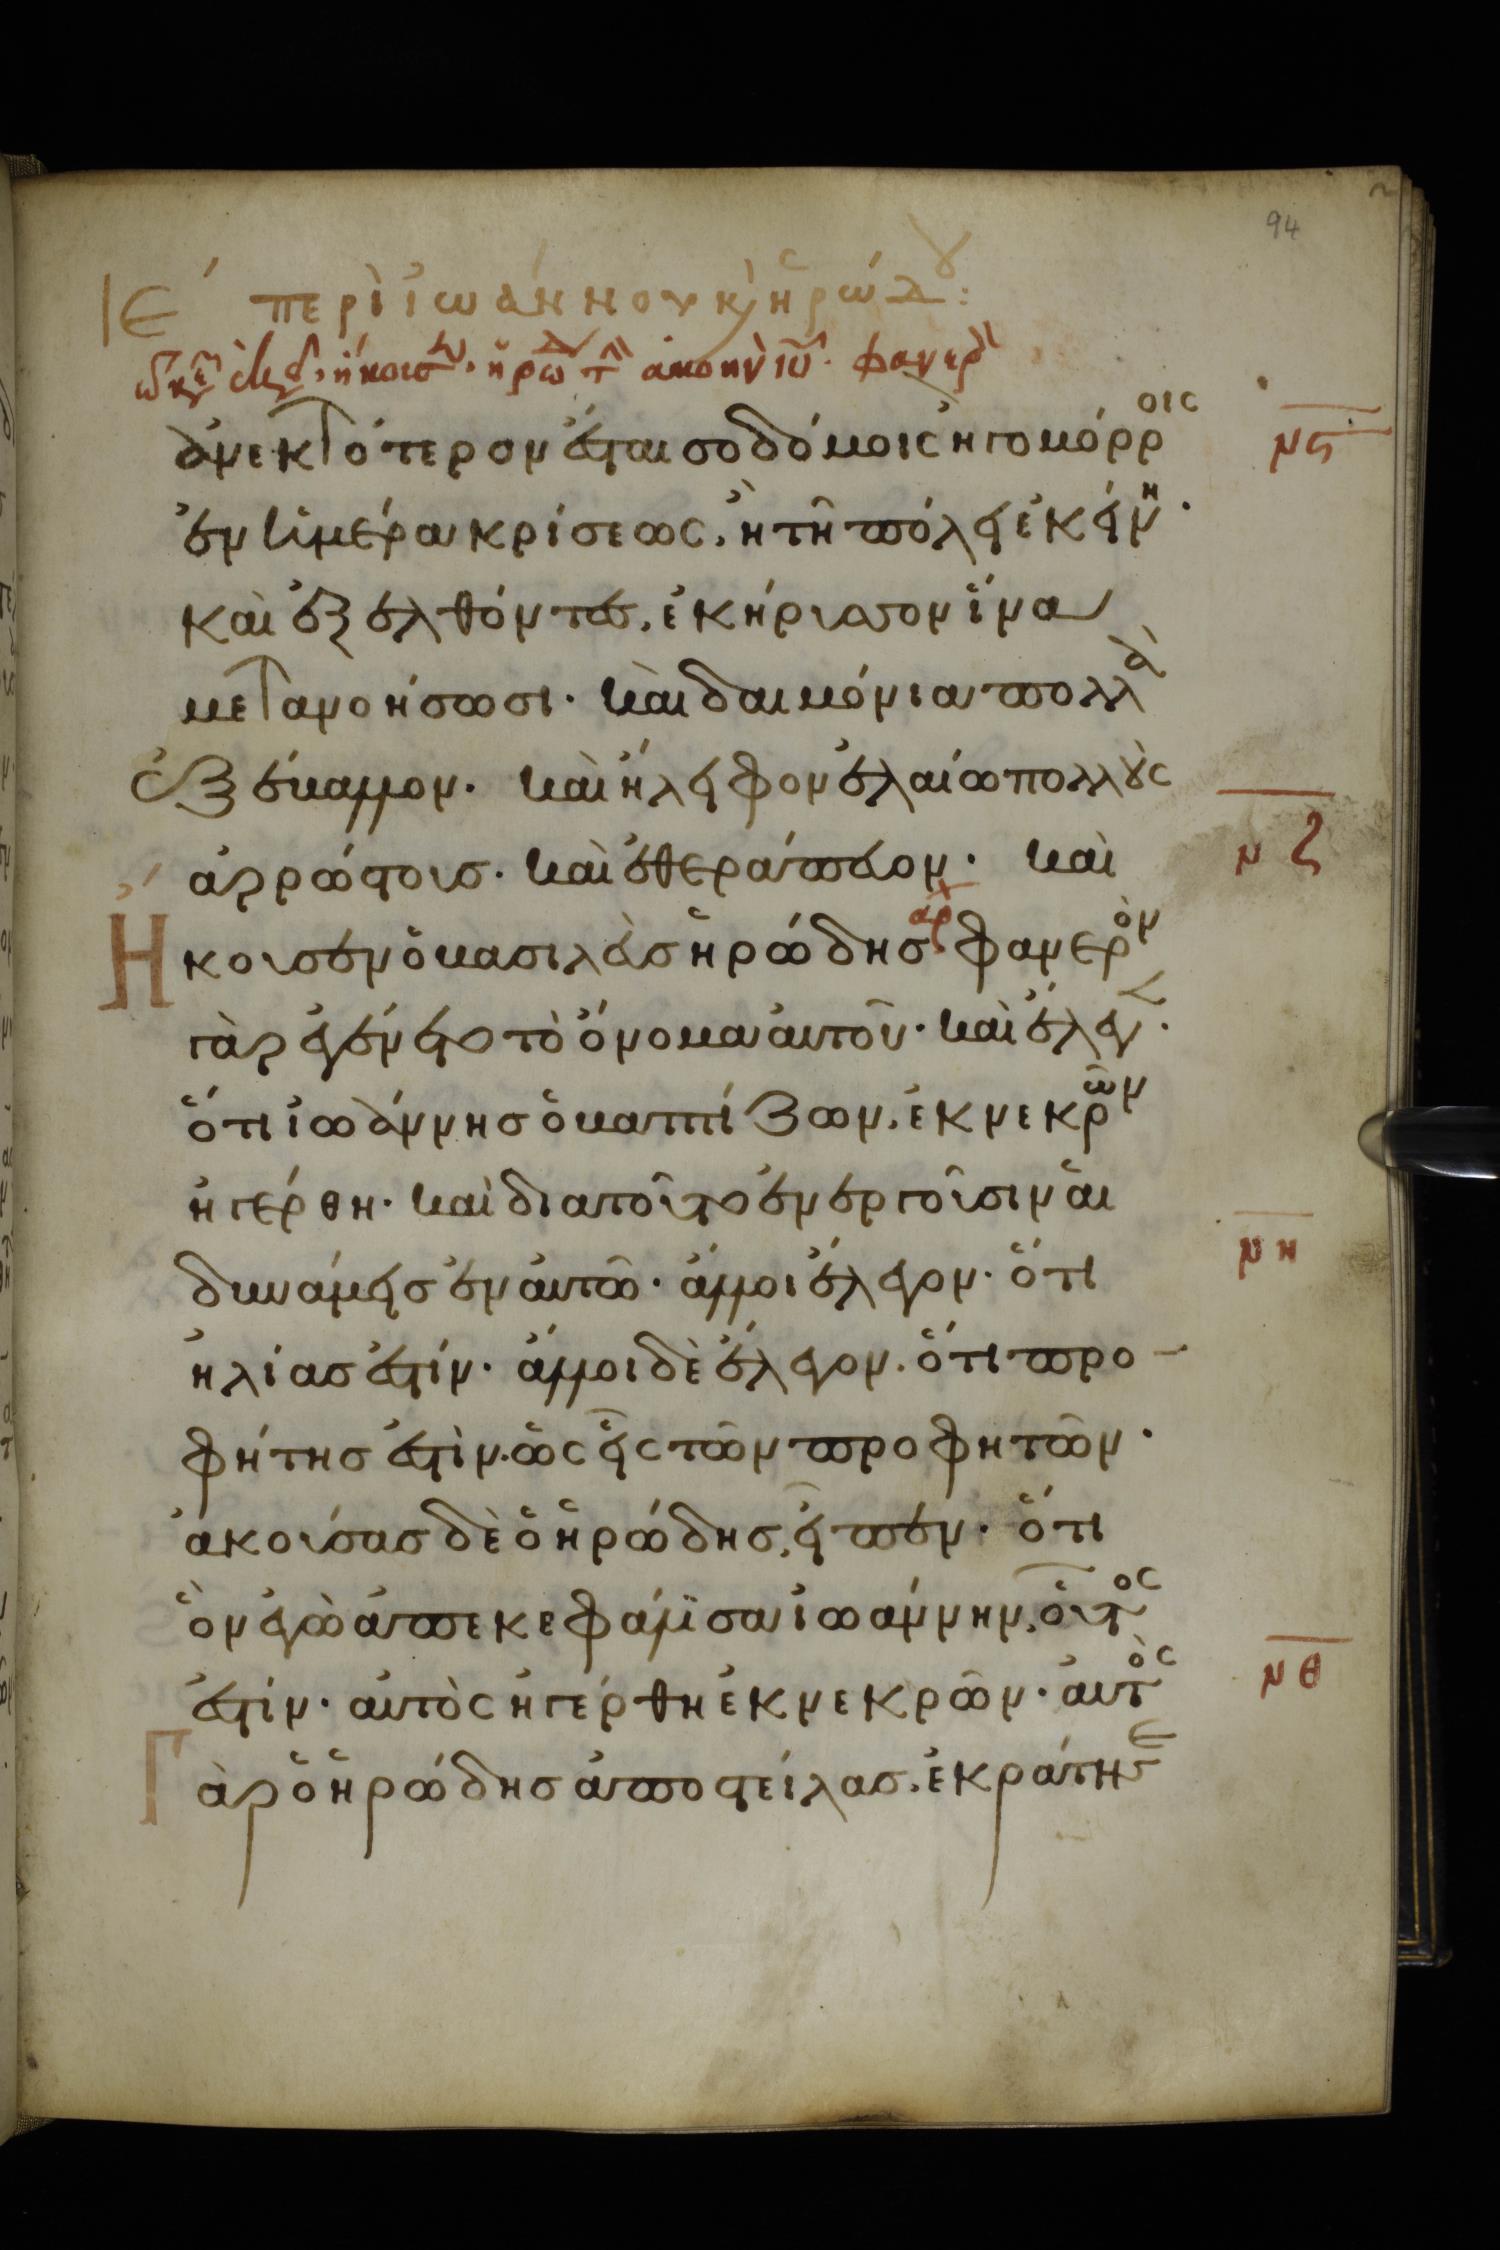 94
ΙΕ περὶ ἰωάννου κ ἡρώδου:
ἤκουσεν ἡρώδ τ ἀκοὴν ιυ. φανερ
ἀνεκτότερον ἔσται σοδόμοις ἢ γομόρροις
ἐν ἡμέρα κρίσεως, ἢ τῆ πόλει ἐκείνη.
καὶ ἐξελθόντες, ἐκήρυσσον ἵνα
μετανοήσωσι. καὶ δαιμόνια πολλὰ
ἐξέβαλλον. καὶ ἤλειφον ἐλαίω πολλοὺς
ἀρρώστους. καὶ ἐθεράπευον. καὶ
Ἤκουσεν ὁ βασιλεὺς ἡρώδης, φανερὸν
γὰρ ἐγένετο τὸ ὄνομα αὐτοῦ. καὶ ἔλεγ.
ὅτι ἰωάννης ὁ βαπτίζων, ἐκ νεκρῶν
ἠγέρθη. καὶ διατοῦτο ἐνεργοῦσιν αἱ
δυνάμεις ἐν αὐτῶ. ἄλλοι ἔλεγον. ὅτι
ἠλίας ἐστίν. ἄλλοι δὲ ἔλεγον. ὅτι προ
φήτης ἐστὶν. ὡς εἷς τῶν προφητῶν.
ἀκούσας δὲ ὁ ἡρώδης, εἶπεν. ὅτι
ὃν ἐγὼ ἀπεκεφάλισα ἰωάννην, οὗτος
ἐστίν. αὐτὸς ἠγέρθη ἐκ νεκρῶν. αὐτὸς
Γὰρ ὁ ἡρώδης ἀποστείλας, ἐκράτησε
μς
μζ
μη
μθ